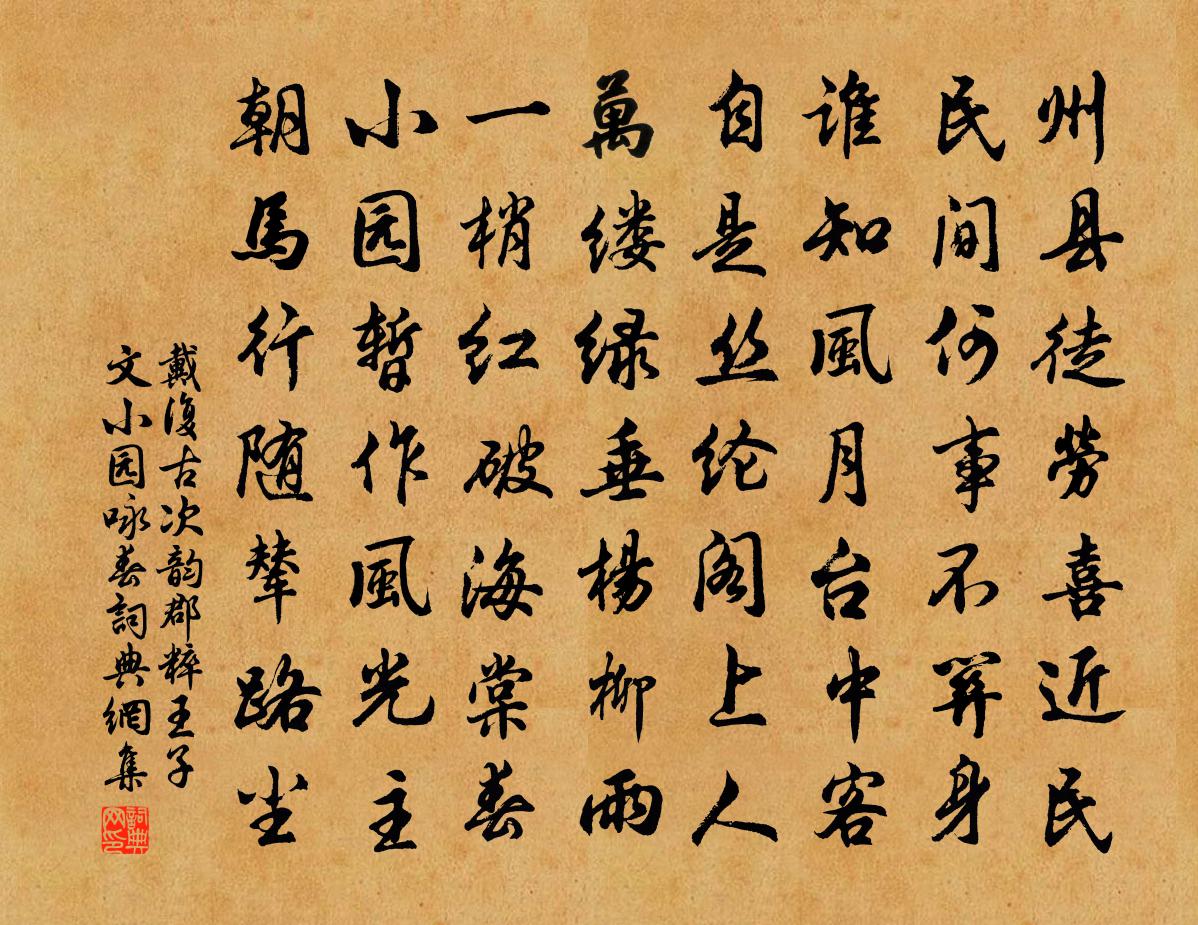 州县徒劳喜近民
民间何事不关身
谁知風月台中客
自是丝纶阁上人
萬缕绿垂楊柳雨
一梢红破海棠春
小园暂作風光主
朝馬行随辇路尘
戴復古次韵郡粹王子
文小园咏春詞典網集
詞典
网印